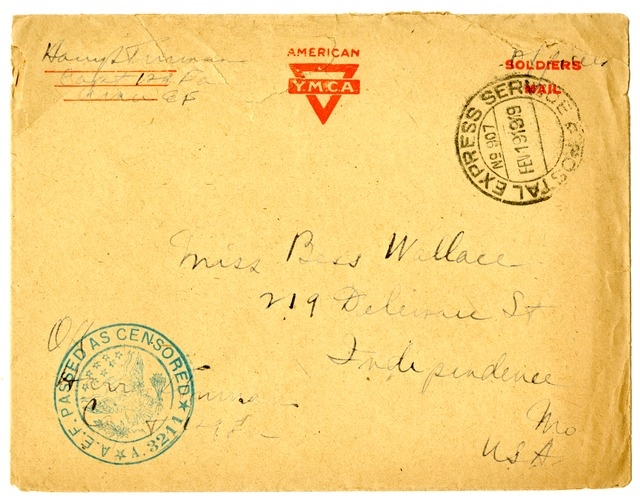 Harry S Truman
Capt 129 FA
AEF
AMERICAN
Y.M.C.A.
SOLDIERS
MAIL
POSTAL EXPRESS SERVICE
No 907
Miss Bess Wallace
219 Delaware St
Independence
Mo
USA
A.E.F. PASSED AS CENSORED
A. 3211